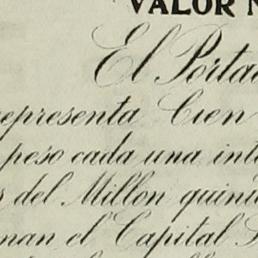 VALOR N
El Portad
representa Cien
peso cada una inte
s del Millon quini
man el Capital S